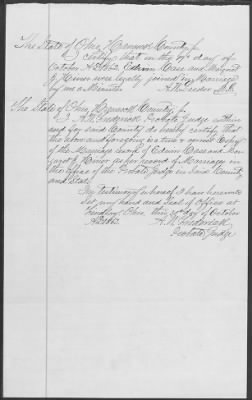 The State of Ohio, Hancock County ss
I certify that on the 19th day of
October A.D. 1862, Edwin Cass and Margaret
J. Hemor were legally joined in Marriage
by me a Minister.
The State of Ohio, Hancock County ss
I A. W. Frederick Probate Judge within
and for said County do hereby certify that
the above and foregoing is a true & correct Copy
of the Marriage record of Edwin Cass and Mar
garet J. Hemor as per record of Marriages in
the office of the Probate Judge in said County
and State.
In testimony whereof I have hereunto
set my hand and Seal of Office at
Findlay, Ohio, this day of October
A. W. Frederick
Probate Judge